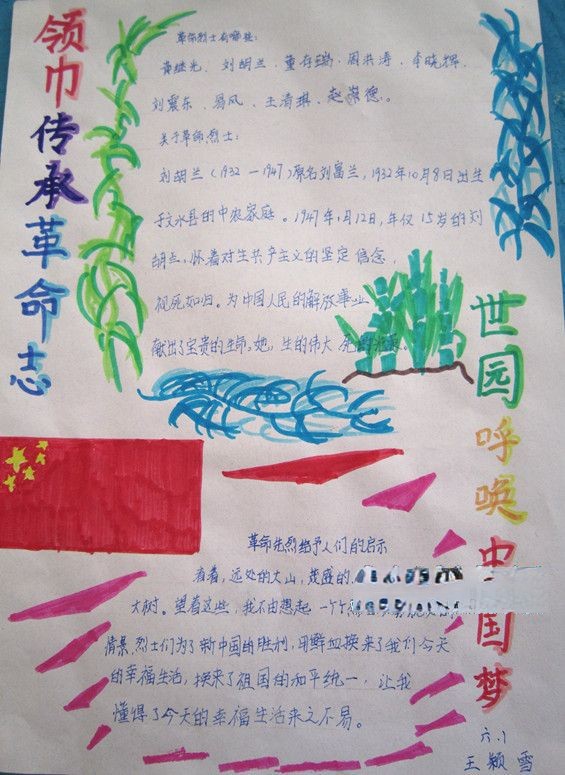 领巾传承革命志
革命烈士有哪些:
黄继光、刘胡兰、董存瑞、周洪涛、李晓辉、
刘震东、易风、王清琪、赵崇德。
关于革命烈士:
刘胡兰(1932—1947)原名刘富兰,1932年10月8日出生
于文水县的中农家庭。1947年1月12日,年仅15岁的刘
胡兰,怀着对共产主义的坚定信念,
视死如归。为中国人民的解放事业
献出了宝贵的生命。她,生的伟大 死
世园呼唤中国梦
革命先烈给予人们的启示
看着,远处的大山,茂盛的
大树。望着这些,我不由想起一个个
情景,烈士们为了新中国的胜利,用鲜血换来了我们今天
的幸福生活,换来了祖国的和平统一,让我
懂得了今天的幸福生活来之不易。
六.1
王颖雪